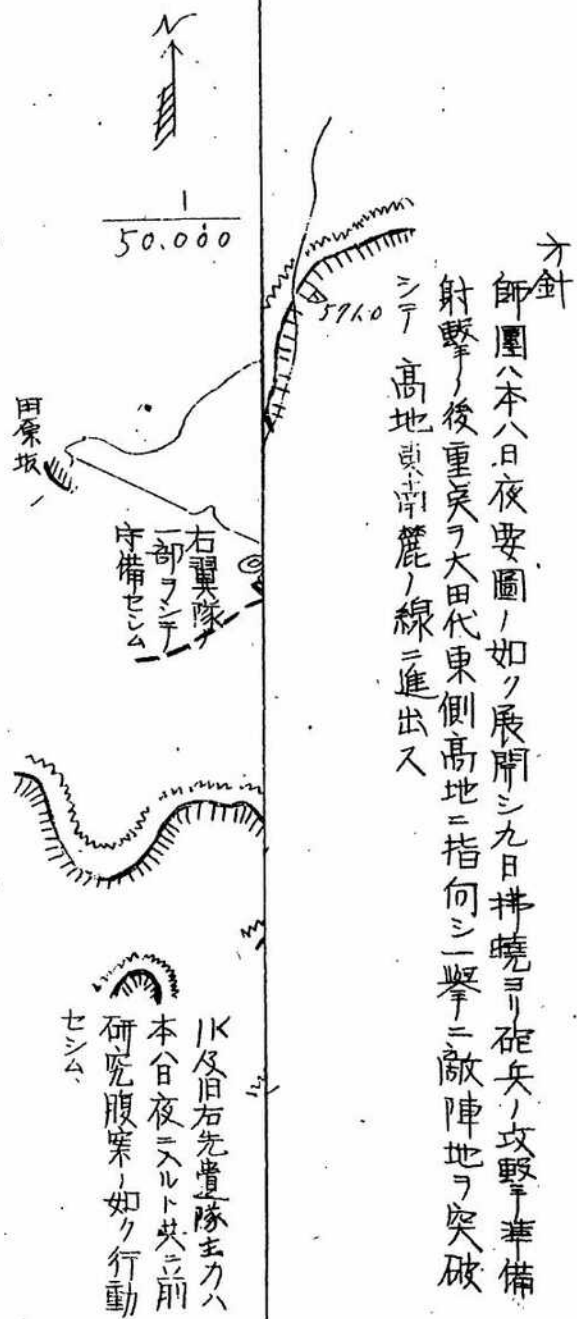 方針
師團ハ本八日夜要圖ノ如ク展開シ九日拂曉ヨリ砲兵ノ攻擊準備
射擊ノ後重点ヲ大田代東側高地ニ指向シ一擧ニ敵陣地ヲ突破
シテ高地東南麓ノ線ニ進出ス
N
1
50.000
571.0
田原坂
右翼隊ノ
一部ヲシテ
守備セシム
1K及旧右先遣隊主力ハ
本八日夜ニ入ルト共ニ前
研究腹案ノ如ク行動
セシム、